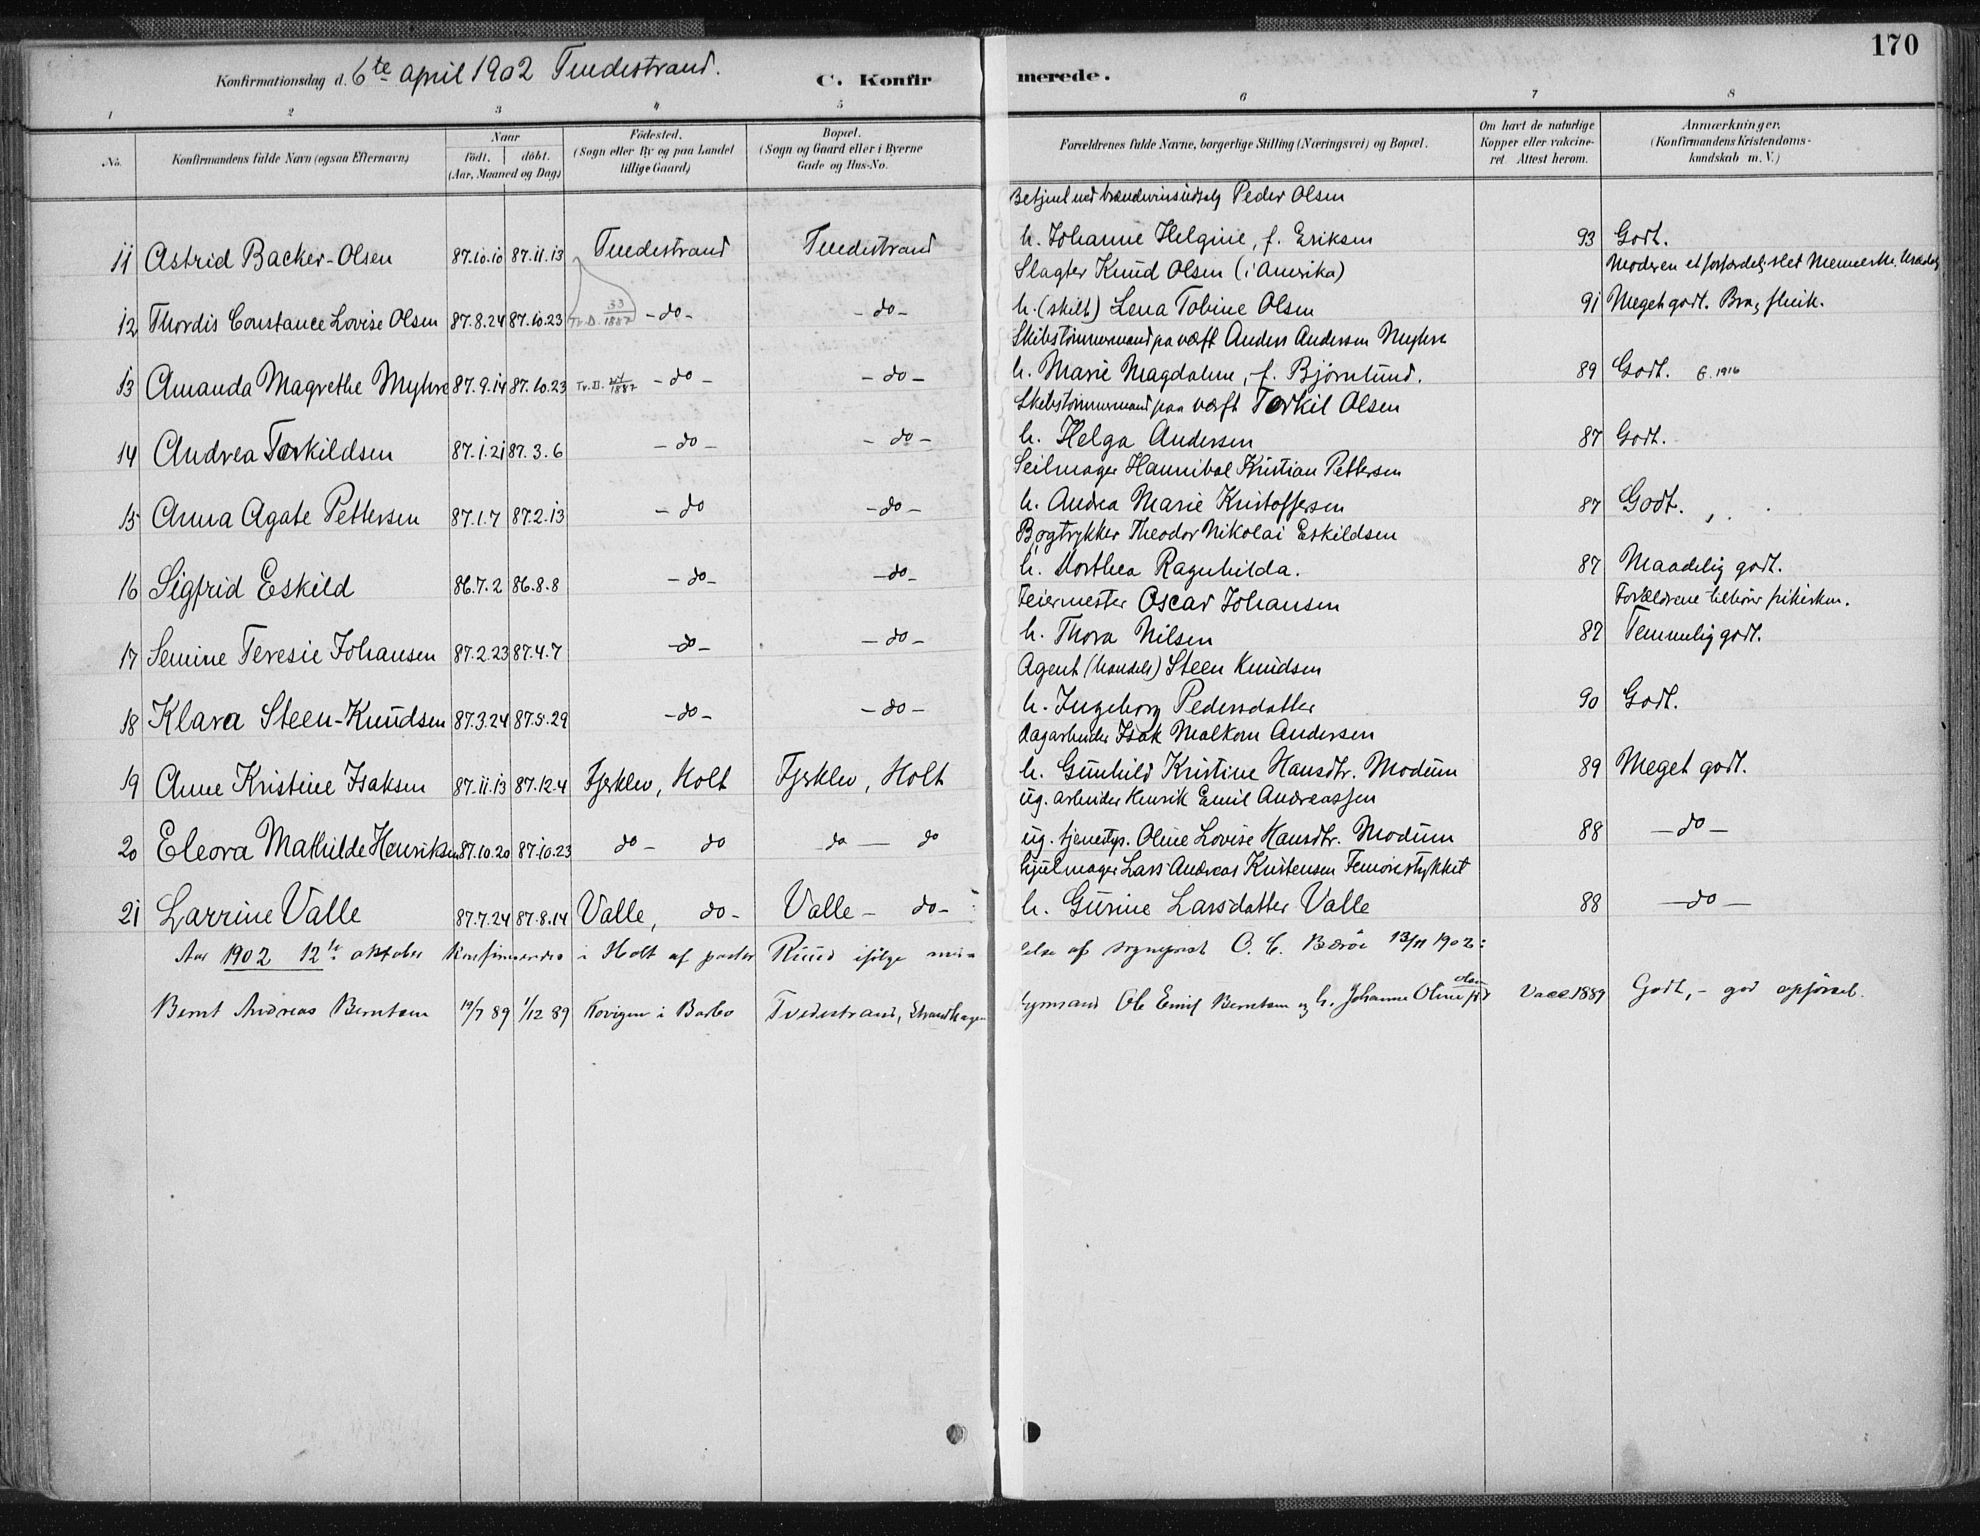 170
Konfirmationsdag d. 6te april 1902 Tvedestrand. C. Konfirmerede.
1 2 3 4 5 6 7 8
No. Konfirmandens fulde Navn (ogsaa Efternavn) Naar født. døbt. (Aar, Maaned og Dag) Fødested. (Sogn eller By og paa Landet tillige Gaard) Bopæl. (Sogn og Gaard eller i Byerne Gade og Hus-No. Forældrenes fulde Navne, borgerlige Stilling (Næringsvei) og Bopæl. Om havt de naturlige Kopper eller vakcineret. Attest herom. Anmærkninger. (Konfirmandens Kristendomskundskab m. V.)
Betjent ved brændevinsudsalg Peder Olsen
11 Astrid Backer-Olsen 87.10.10 87.11.13 Tvedestrand Tvedestrand h. Johanne Helgine, f. Eriksen 93 Godt.
Slagter Knud Olsen (i Amerika) Moderen et forfærdelig slet Menneske.
12 Thordis Constance Lovise Olsen 87.8.24 87.10.23 Tv.D. 33/1887 -do- -do- h. (skilt) Lena Tobine Olsen 91 Meget godt. Bra, flink.
Skibstømmermand paa værft Anders Andersen Myhre
13 Amanda Magrethe Myhre 87.9.14 87.10.23 Tv.D. 24/1887 -do- -do- h. Marie Magdalene, f. Bjørnlund. 89 Godt. G. 1916
Skibstømmermand paa værft Torkil Olsen
14 Andrea Torkildsen 87.1.21 87.3.6 -do- -do- h. Helga Andersen 87 Godt.
Seilmager Hannibal Kristian Pettersen
15 Anna Agate Pettersen 87.1.7 87.2.13 -do -do- h. Andrea Marie Kristoffersen 87 Godt.
Bogtrykker Theodor Nikolai Eskildsen
16 Sigfrid Eskild 86.7.2 86.8.8 -do- -do- h. Dorthea Ragnhilda. 87 Maadelig godt.
Feiermester Oscar Johansen Forældrene tilhører frikirken.
17 Semine Teresie Johansen 87.2.23 87.4.7 -do- -do- h. Thora Nilsen 87 Temmelig godt.
Agent (handels) Steen Knudsen
18 Klara Steen-Knudsen 87.3.24 87.5.29 -do- -do- h. Ingeborg Pedersdatter 90 Godt.
Dagarbeider Isak Malkom Andersen
19 Anne Kristine Isaksen 87.11.13 87.12.4 Fjerklev, Holt Fjerklev, Holt h. Gunhild Kristine Hansdtr. Modum 89 Meget godt.
ug. arbeider Henrik Emil Andreassen
20 Eleora Mathilde Henriksen 87.10.20 87.10.23 do- do do - do ug. tjenestep. Oline Lovise Hansdtr. Modum 88 -do-
Hjulmager Lars Andreas Kristensen
21 Larrine Valle 87.7.24 87.8.14 Valle, do- Valle - do- h. Gurine Larsdatter Valle 88 -do-
Aar 1902 12te oktober konfirmeredes i Holt af pastor Ruud ifølge af sogneprest O. C. Bærøe 13/11 1902:
Bernt Andreas Berntsen 19/7 89 1/12 89 i Barbo Tvedestrand, Strandhagen Ole Emil Berntsen og h. Johanne Oline født Olsen Vacc. 1889 Godt, - god opførsel.